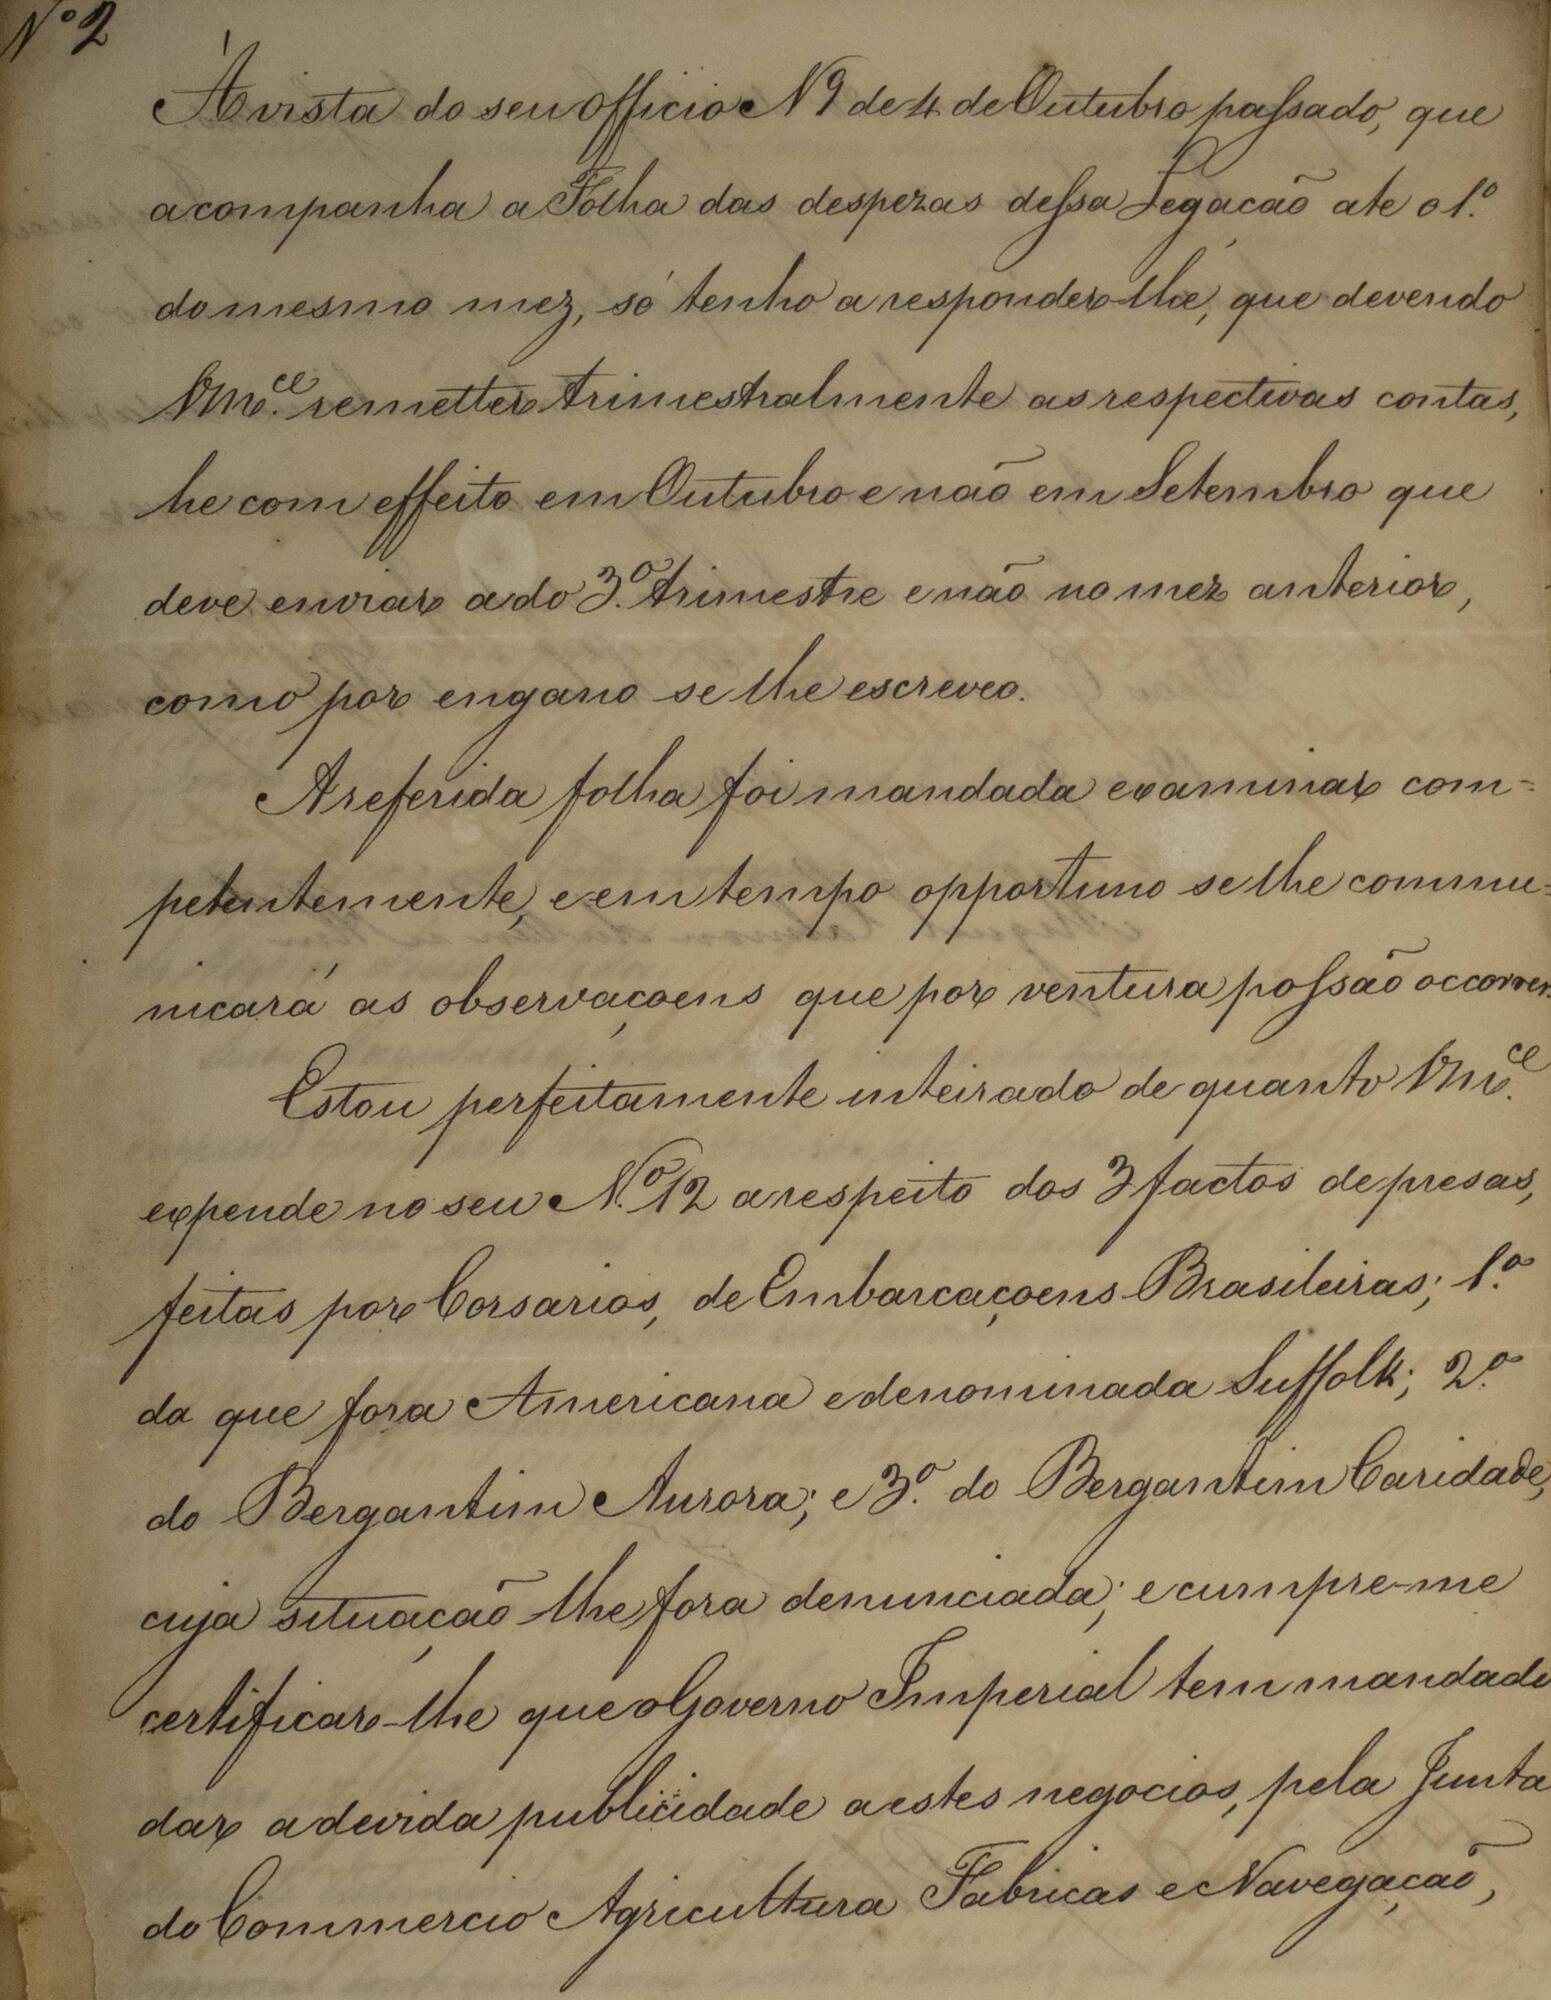 Nº 2
Á vista do seu officio N 9 de 4 de Outubro passado, que
acompanha a Folha das despezas dessa Legação ate o 1.º
do mesmo mez, só tenho a responder-lhe, que devendo
Vm.ce remetter trimestralmente as respectivas contas,
he com effeito em Outubro e não em Setembro que
deve enviar a do 3.º trimestre e não no mez anterior,
como por engano se lhe escreveo.
A referida folha foi mandada examinar com=
petentemente, e em tempo opportuno se lhe commu=
nicará as observaçoens que por ventura possão occorrer.
Estou perfeitamente inteirado de quanto Vm.ce
expende no seu N.º 12 a respeito dos 3 factos de presas,
feitas por Corsarios, de Embarcaçoens Brasileiras; 1.º
da que fora Americana e denominada Suffolk; 2.º
do Bergantim Aurora; e 3.º do Bergantim Caridade,
cuja situação lhe fora denunciada; e cumpre-me
certificar-lhe que o Governo Imperial tem mandado
dar a devida publicidade a estes negocios, pela Junta
do Commercio Agricultura Fabricas e Navegação,